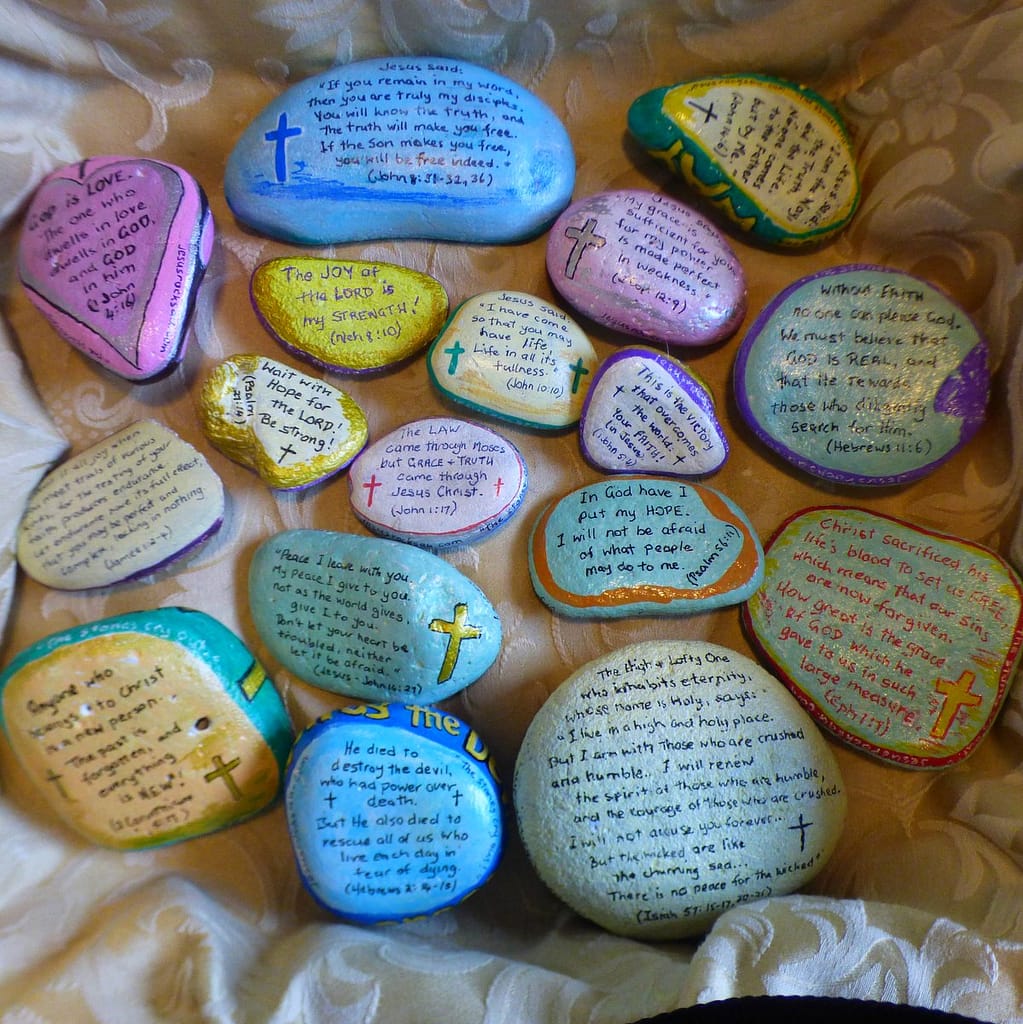 Jesus said:
"If you remain in my word,
then you are truly my disciples.
You will know the truth, and
the truth will make you free.
If the Son makes you free,
you will be free indeed."
(John 8:31-32, 36)
Jesus said:
"I am the Way,
the Truth and
the Life.
No one comes
to the Father
but by Me."
(John 14:6)
GOD is LOVE.
The one who
dwells in love
dwells in GOD,
and GOD
in him
(1 John
4:16)
Jesusrocks
"My grace is
sufficient for you
for my power
is made perfect
in weakness."
(2 Cor 12:9)
The JOY of
the LORD is
my STRENGTH!
(Neh 8:10)
Jesus said:
"I have come
so that you may
have life.
Life in all its
fullness."
(John 10:10)
WITHOUT FAITH
no one can please God.
We must believe that
GOD IS REAL, and
that He rewards
those who diligently
search for Him.
(Hebrews 11:6)
This is the victory
that overcomes
the world.
Your FAITH!
(in Jesus)
(1 John 5:4)
Wait with
Hope for
the LORD!
Be strong!
(Psalm
The LAW
came through Moses
but GRACE + TRUTH
came through
Jesus Christ.
(John 1:17)
all joy when
meet trials of various
for the testing of your
produces endurance.
let endurance have its full effect,
that you may be perfect and
complete, lacking in nothing.
(James 1:2-4)
In God have I
put my HOPE.
I will not be afraid
of what people
may do to me.
(Psalm 56:11)
Christ sacrificed his
life's blood to set us FREE,
which means that our sins
are now forgiven.
How great is the grace
of GOD which he
gave to us in such
large measure.
(Eph 1:7)
"Peace I leave with you.
My peace I give to you,
not as the world gives,
give I to you.
Don't let your heart be
troubled, neither
let it be afraid."
(Jesus - John 14:27)
stones cry out
Anyone who
belongs to Christ
is a new person.
The past is
forgotten, and
everything
is NEW!
the D
He died to
destroy the devil,
who had power over
death.
But He also died to
rescue all of us who
live each day in
fear of dying.
(Hebrews 2:14-15)
The High & Lofty One
who inhabits eternity,
whose name is Holy, says:
"I live in a high and holy place.
But I am with those who are crushed
and humble.. I will renew
the spirit of those who are humble,
and the courage of those who are crushed.
I will not accuse you forever..
But the wicked are like
the churning sea...
There is no peace for the wicked"
(Isiah 57:15-17, 20-21)